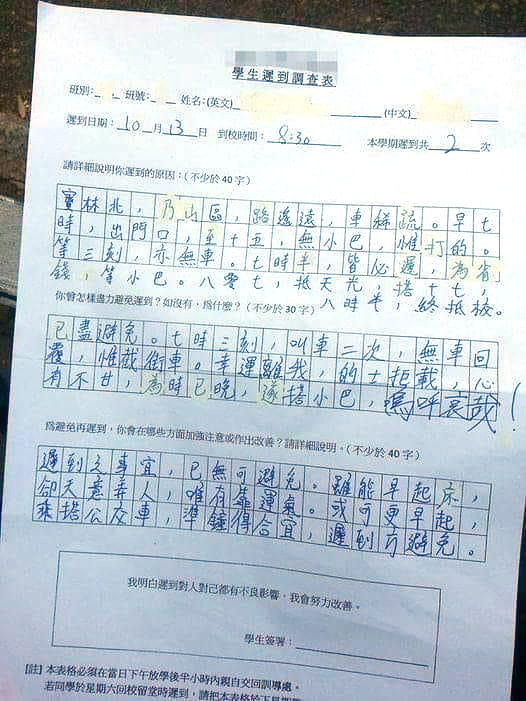 學生遲到調查表
班別: 班號: 姓名:(英文) (中文)
遲到日期: 10 月 13 日 到校時間: 8:30 本學期遲到共 2 次
請詳細說明你遲到的原因:(不少於 40 字)
寶林北，乃山區，路遙遠，車稀疏。早七
時，出門口，至十五，無小巴，惟打的。
等三刻，亦無車。七時半，皆必遲，為省
錢，等小巴。八零七，抵天光，搭十七，
八時半，終抵校。
你曾怎樣盡力避免遲到？如沒有，為什麼？(不少於 30 字)
已盡避免。七時三刻，叫車二次，無車回
覆，惟截街車。幸運離我，的士拒載，心
有不甘，為時已晚，遂搭小巴，嗚呼哀哉！
為避免再遲到，你會在哪些方面加強注意或作出改善？請詳細說明。(不少於 40 字)
遲到之事宜，已無可避免。雖能早起床，
卻天意弄人，唯有靠運氣。或可更早起，
乘搭公交車，準鐘得合宜，遲到可避免。
我明白遲到對人對己都有不良影響，我會努力改善。
學生簽署：
[註] 本表格必須在當日下午放學後半小時內親自交回訓導處。
若同學於星期六回校留堂時遲到，請把本表格於下星期